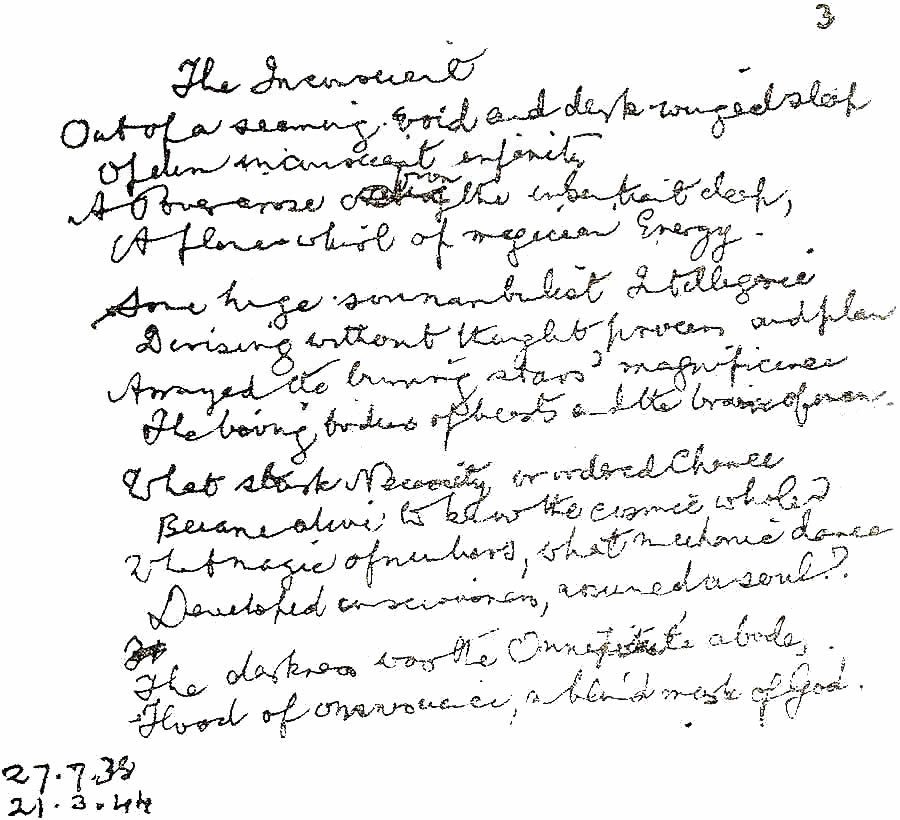 3
The Inconscient
Out of a seeming void and dark-winged sleep
Of dim inconscient infinity
A Power arose from the insentient deep,
A flame-whirl of magician Energy.
Some huge somnambulist Intelligence
Devising without thought process and plan
Arrayed the burning stars' magnificence
The living bodies of beasts and the brain of man.
What stark Necessity or ordered Chance
Became alive to know the cosmic whole?
What magic of numbers, what mechanic dance
Developed consciousness, assumed a soul?
The darkness was the Omnipotent's abode,
Hood of omniscience, a blind mask of God.
27.7.38
21.3.44